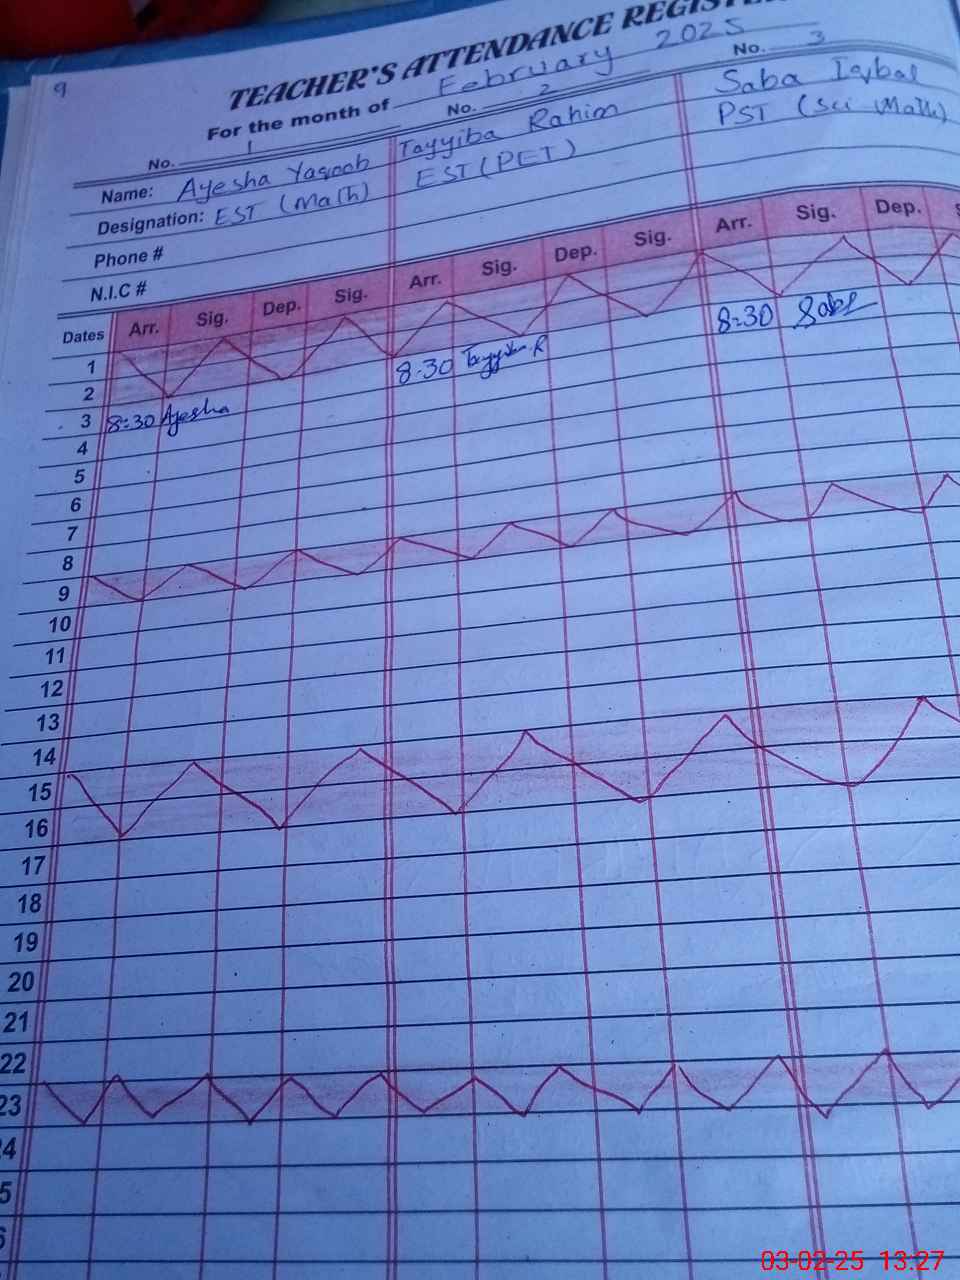 9
TEACHER'S ATTENDANCE REGISTE
For the month of February 2025
No. 1 No. 2 No. 3
Name: Ayesha Yaqoob Tayyiba Rahim Saba Iqbal
Designation: EST (Math) EST (PET) PST (Sci Math)
Phone #
N.I.C #
Dates Arr. Sig. Dep. Sig. Arr. Sig. Dep. Sig. Arr. Sig. Dep. S
1
2
3 8:30 Ayesha 8:30 Tayyiba R 8:30 Saba
4
5
6
7
8
9
10
11
12
13
14
15
16
17
18
19
20
21
22
23
24
5
6
03-02-25 13:27